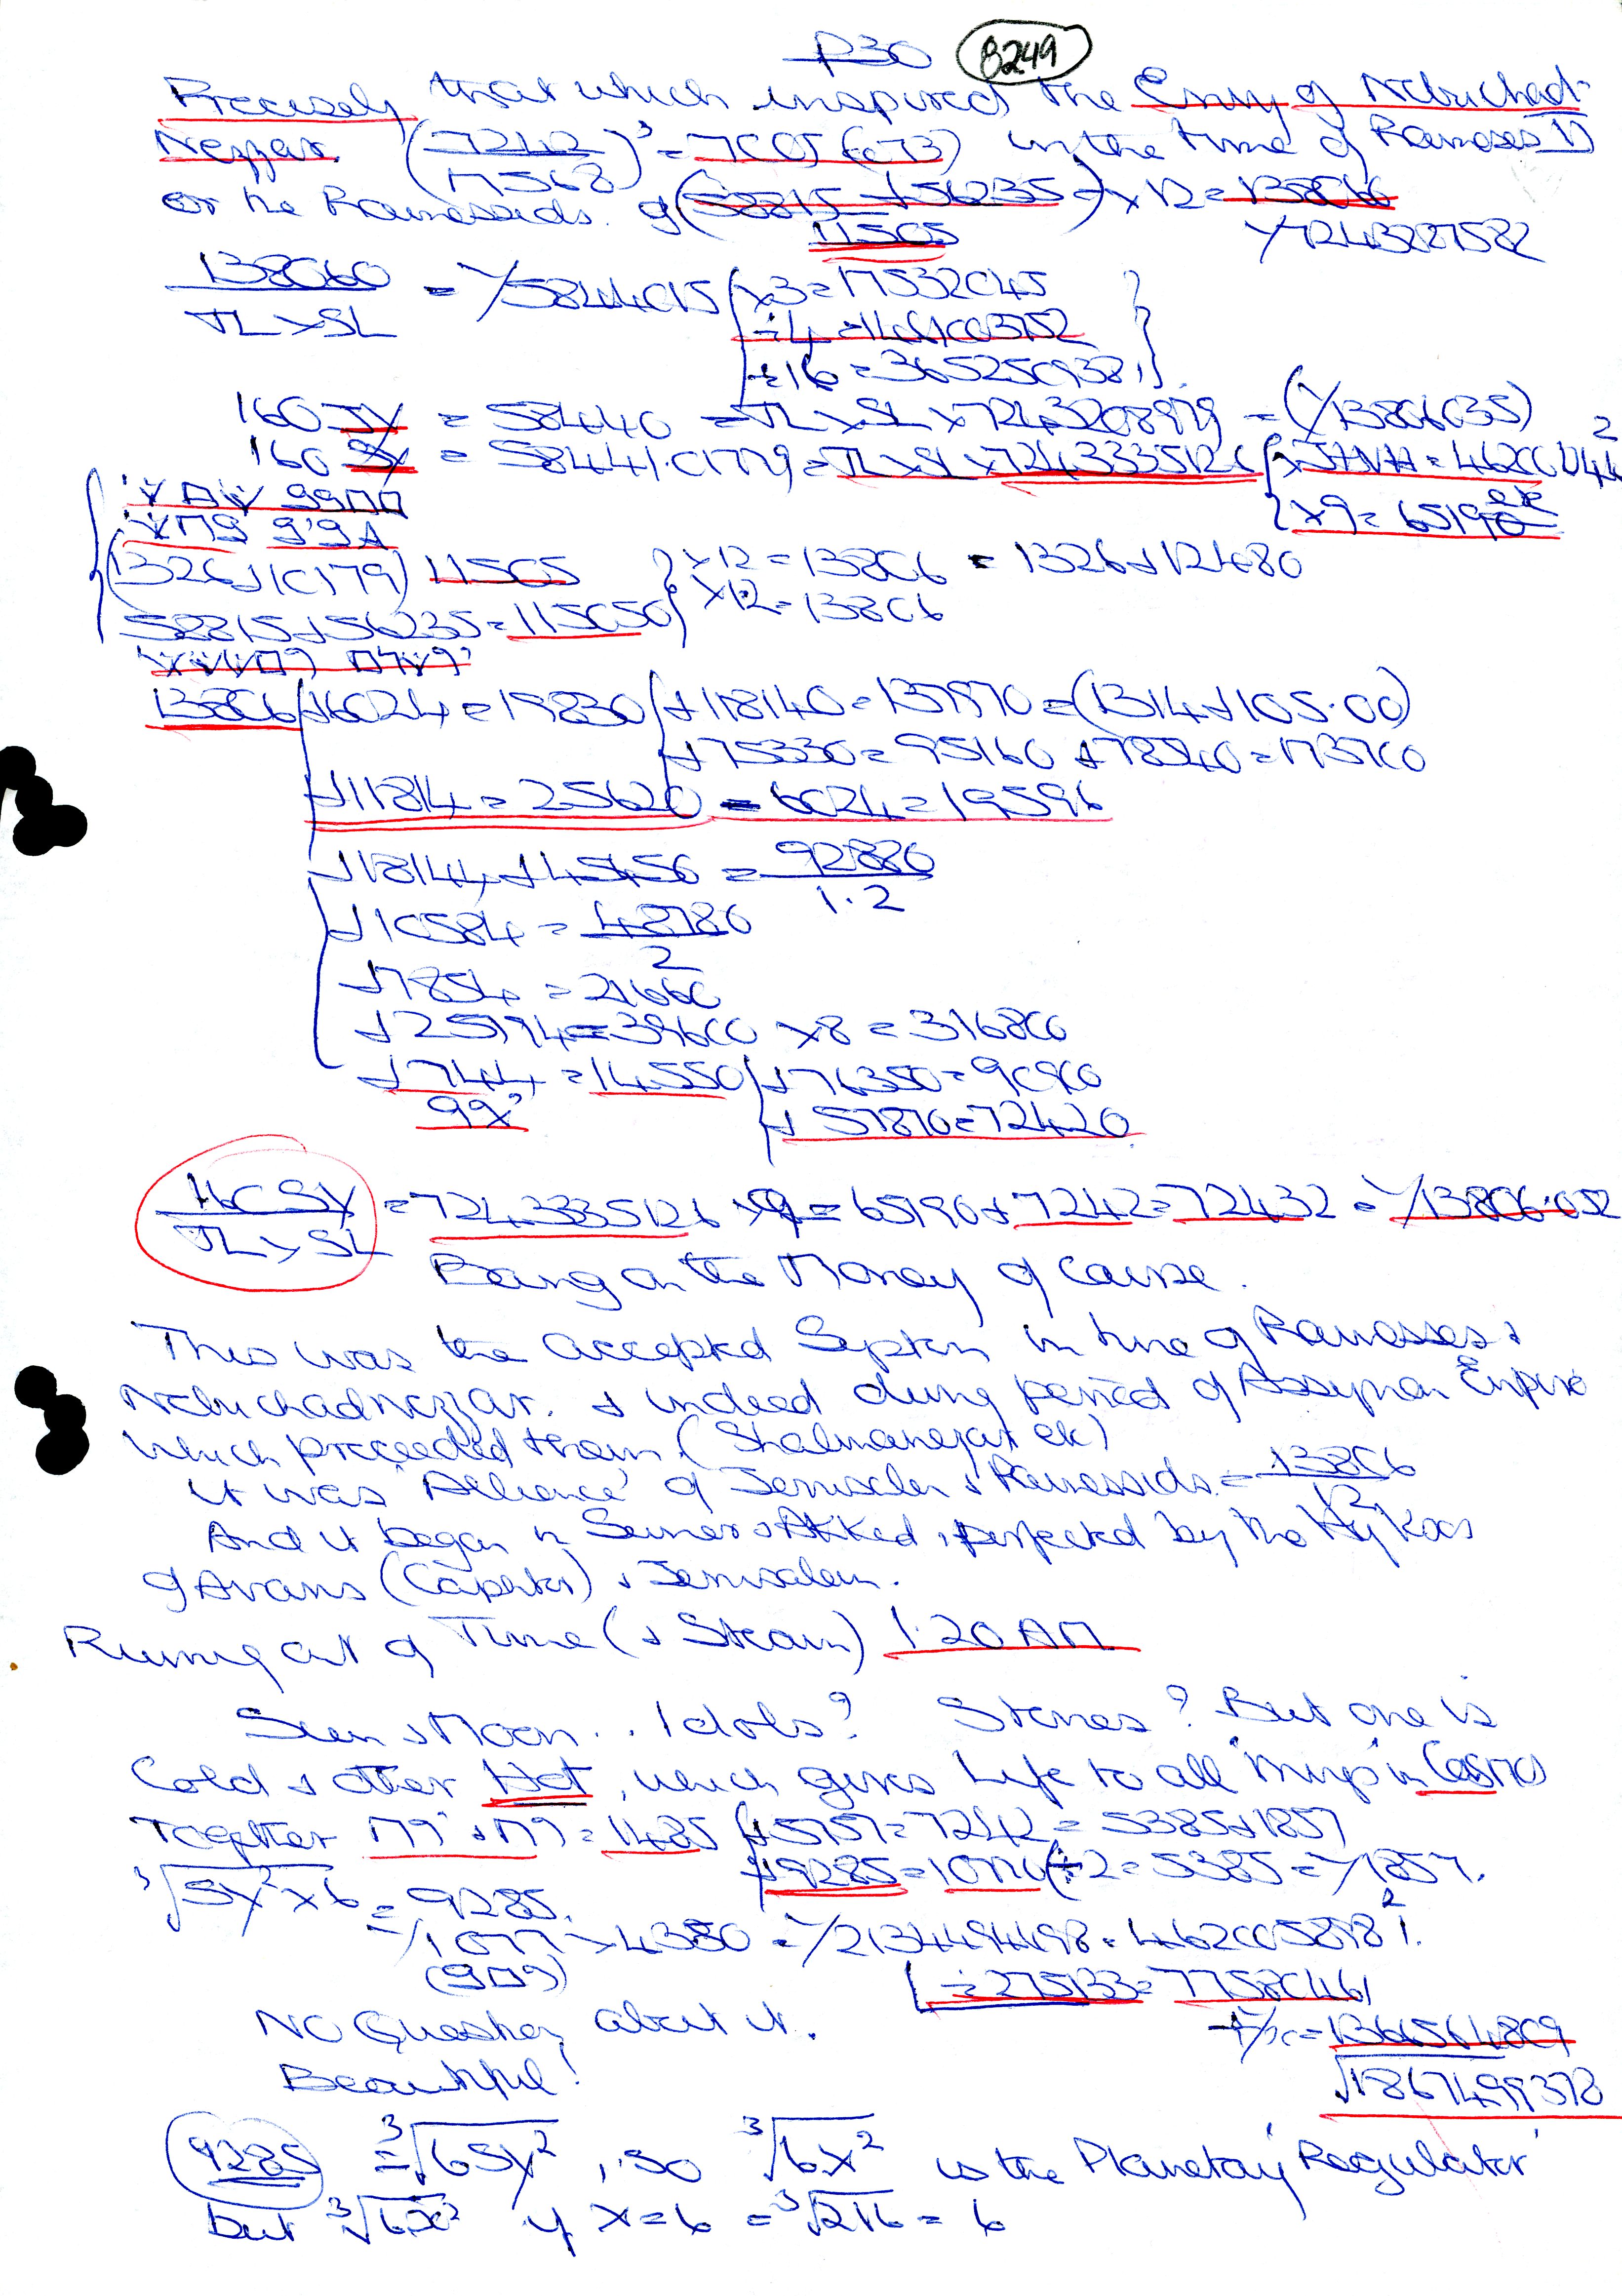 P30 8249
Precisely that which inspired the Envy of Nebuchad-
Nezzar. (7242/17568)³ = 7005 (073) in the time of Rameses II
or the Ramessids. g(58815 + 56235) × 12 = 13806
11505 1/724327582
138060/JL × SL = 1/5844015 { × 3 = 17532045
÷ 4 = 1461003752
÷ 16 = 365250938 }
160 JY = 58440 = JL × SL × 7243208979 = (1/13806035)
160 SY = 58441.01779 = JL × SL × 7243335126 {
× 9 = 65190 etc
(1326 + 10179) 11505 } × 12 = 13806 = 1326 + 12480
58815 + 56235 = 115050 } × 12 = 13806
13806 { + 6024 = 19830 { + 118140 = 137970 = (1314 + 105.00)
+ 75330 = 95160 + 78540 = 173700
+ 11814 = 25620 - 6024 = 19596
+ 18144 + 45456 = 92880/1.2
+ 10584 = 48780/2
+ 7854 = 21660
+ 25794 = 39600 × 8 = 316800
+ 744 = 14550 { + 76350 = 90900
+ 57870 = 72420
160 SY/JL × SL = 7243335126 × 9 = 65190 + 7242 = 72432 = 1/13806.052
Bang on the Money of Course.
This was the accepted System in time of Ramesses +
Nebuchadnezzar. + indeed during period of Assyrian Empire
which preceeded them (Shalmanezar etc)
it was 'Alliance' of Jerusalem + Ramessids. = 13806/12
And it began in Sumer + Akkad, perfected by the Hyksos
of Avaris (Caphtor) + Jerusalem.
Running out of Time (+ Steam) 1.20 AM
Sun + Moon.. Idols? Stones? But one is
Cold + other Hot, which gives Life to all 'things' in Cosmos
Together = 1485 { + 5757 = 7242 = 5385 + 1857
+ 9285 = 10770 (÷ 2 = 5385 = 1/1857.
³√SY² × 6 = 9285.
= 1/1077 > 4380 = 1/2134494498 = 4620058981²
÷ 275133 = 77580461
= 1366564809
√1867499378
No Question about it.
Beautiful!
9285 = ³√6SY², so ³√6x² is the Planetary 'Regulator'
but ³√6x² if x = 6 = ³√216 = 6